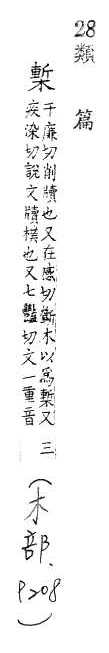 28
類篇
槧
千廉切削牘也又在感切斷木以爲槧又
疾染切說文牘樸也又七豔切文一重音
三
(木部、
P208)